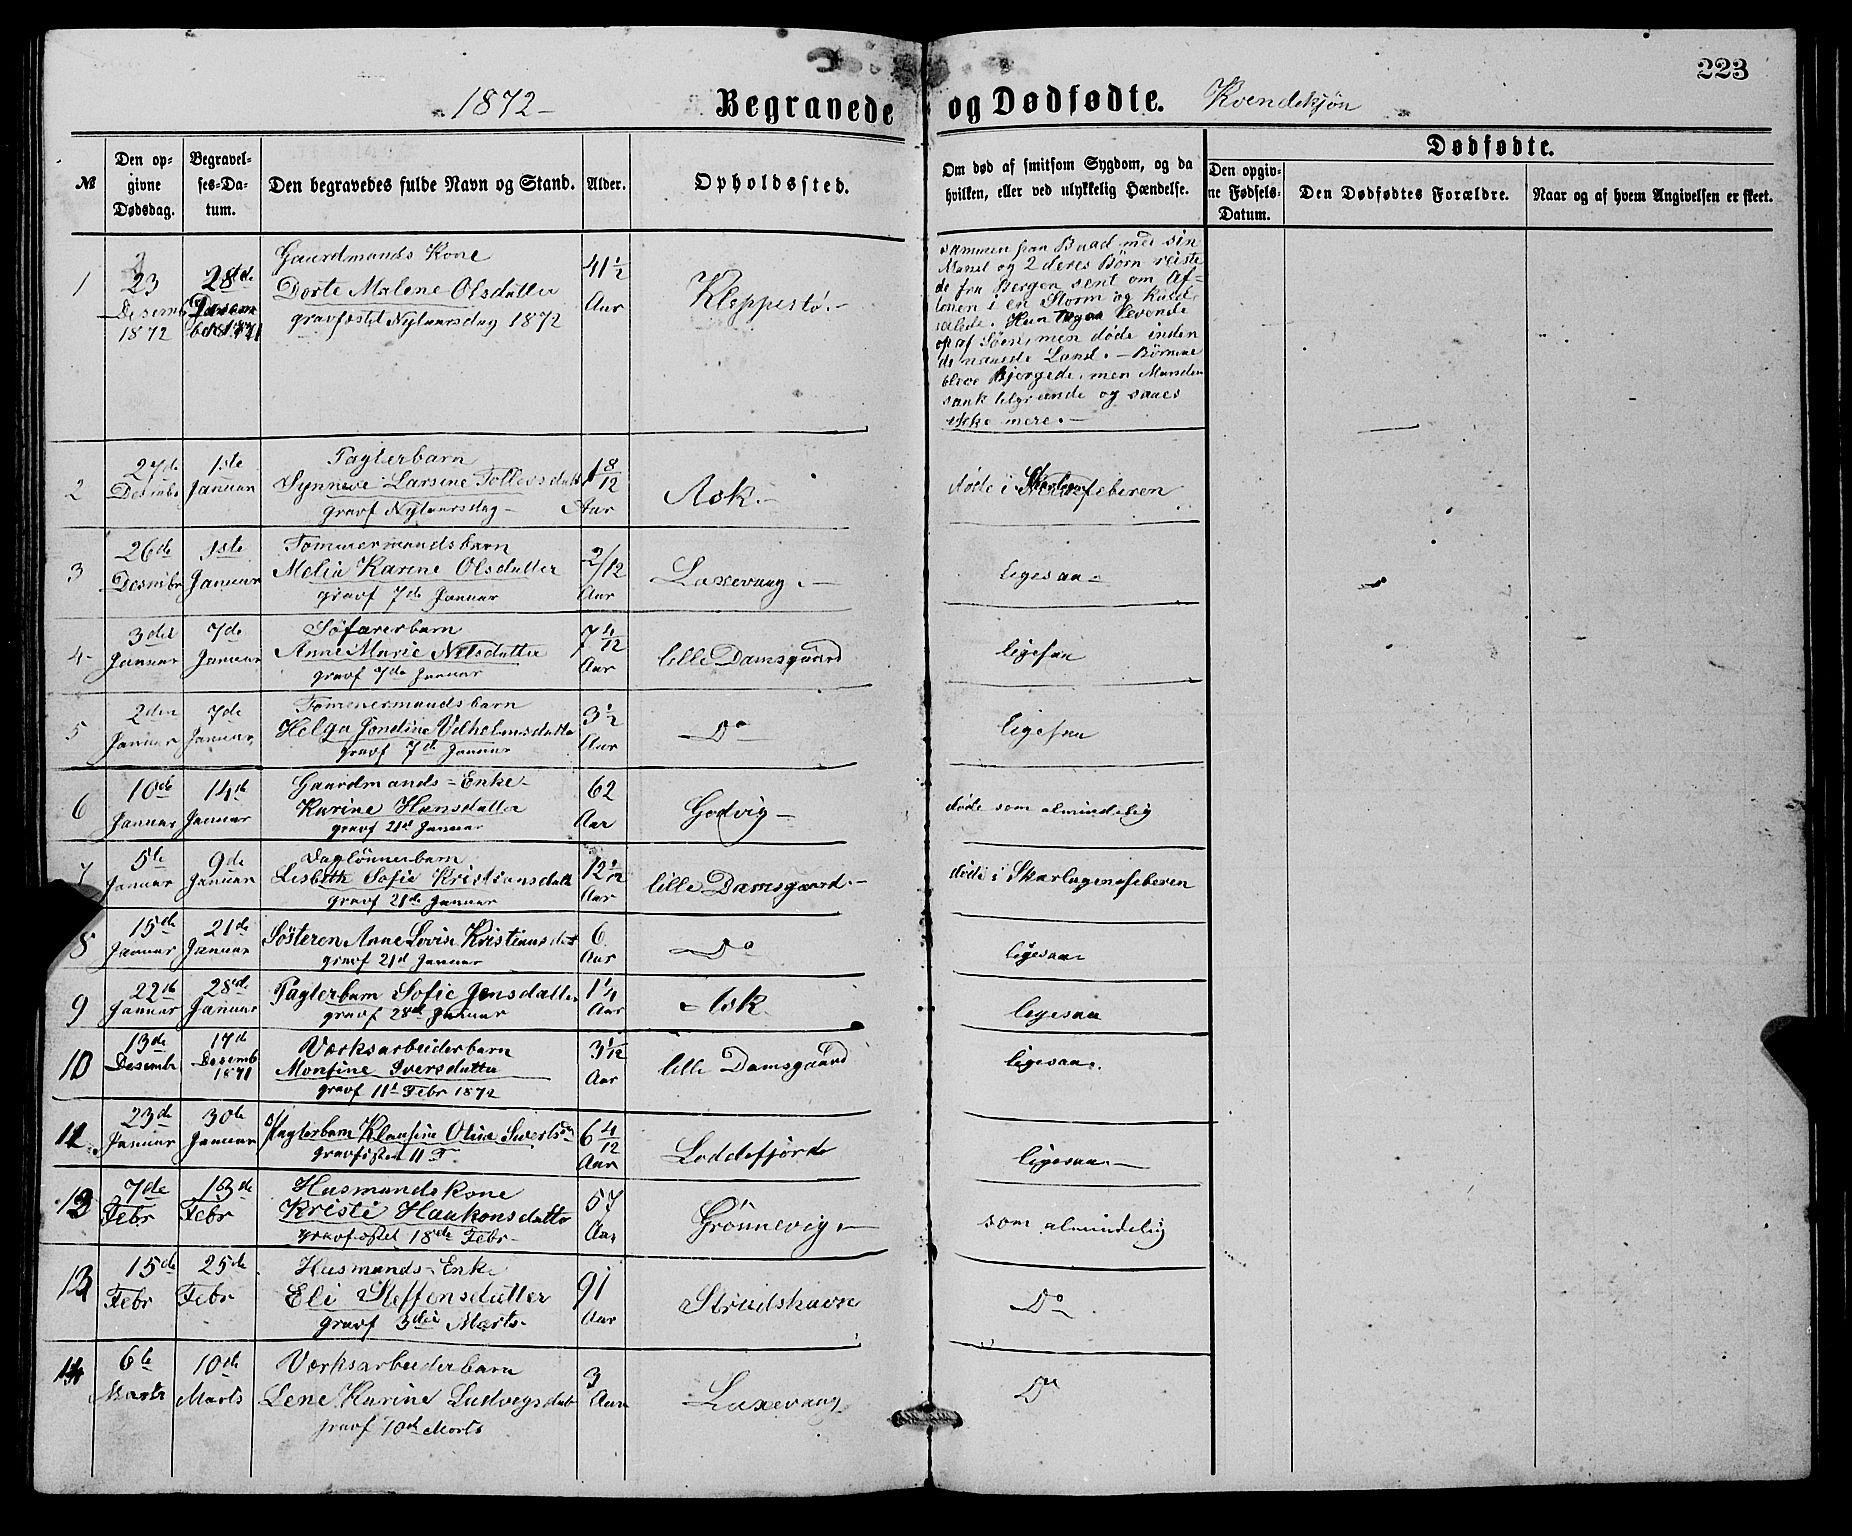 223
1872-
Begravede og Dødfødte.
Kvendekjøn
№
Den op-
givne
Dødsdag.
Begravel-
ses-Da-
tum.
Den begravedes fulde Navn og Stand.
Alder.
Opholdssted.
Om død af smitsom Sygdom, og da
hvilken, eller ved ulykkelig Hændelse.
Dødfødte.
Den opgiv-
ne Fødsels-
Datum.
Den Dødfødtes Forældre.
Naar og af hvem Angivelsen er skeet.
1
23
Desembr
1872
28de
1871
Gaardmands Kone
Dorte Malene Olsdatter
gravfæstet Nytaarsdag 1872
41 1/2
Aar
Kleppestø.-
sammen paa Baad med sin
Mand og 2 deres Børn reiste
de fra Bergen sent om Af-
tenen i en Storm og
Hun toges levende
op af Søen, men døde inden
de naaede Land. - Børnene
bleve bjergede, men Manden
sank tilgrunde og saaes
ikke mere. -
2
27de
Desmbr
1ste
Januar
Pagterbarn
Synneve Larsine Tollevsdatt
gravf Nytaarsdag -
1 8/12
Aar
Ask.-
døde i Skarlagensfeberen
3
26de
Desmbr
1ste
Januar
Tømmermandsbarn
Melia Karine Olsdatter
gravf 7de Januar
2/12
Aar
Laxevaag.-
ligesaa-
4-
3die
Januar
7de
Januar
Søfarerbarn
Anne Marie Nilsdatter
gravf 7de Januar
7 4/12
Aar
lille Damsgaard
ligesaa
5
2den
Januar
7de
Januar
Tømmermandsbarn
Helga Jondine Vilhelmsdatte
gravf 7de Januar
3 1/2
Aar
Do
ligesaa
6
10de
Januar
14de
Januar
Gaardmands-Enke-
Karine Hansdatter
gravf 21de Januar
62
Aar
Godvig-
døde som almindelig
7
5te
Januar
9de
Januar
Daglönnerbarn
Lisbeth Sofie Kristiansdatt
gravf 21de Januar
12 1/12
Aar
lille Damsgaard.-
døde i Skarlagensfeberen
8
15de
Januar
21de
Januar
Søsteren Anne Lovise Kristiansdat
gravf 21d Januar
6
Aar
Do
ligesaa
9
22de
Januar
28de
Januar
Pagterbarn Sofie Jensdatter
gravf 28d Januar
1 1/4
Aar
Ask
ligesaa
10
13de
Desembr
17de
Desemb
1871
Værksarbeiderbarn
Monsine Iversdatter
gravf 11t Febr 1872
3 1/12
Aar
lille Damsgaard
ligesaa.
11
23de
Januar
30de
Januar
Pagterbarn Klausine Oline Sivertsd
gravfæstet 11 F.
6 4/12
Aar
Loddefjorde
ligesaa.-
12
7de
Febr
13de
Febr
Husmandskone
Kristi Haakonsdatter
gravfæstet 18de Febr-
57
Aar
Grönnevig.-
som almindelig
13
15de
Febr
25de
Febr
Husmands-Enke
Eli Steffensdatter
gravf 3die Marts-
91
Aar
Strudshavn
Do
14
6te
Marts
10de
Marts
Værksarbeiderbarn
Lene Karine Ludvigsdat
gravf 10de Marts
3
Aar
Laxevaag
Do